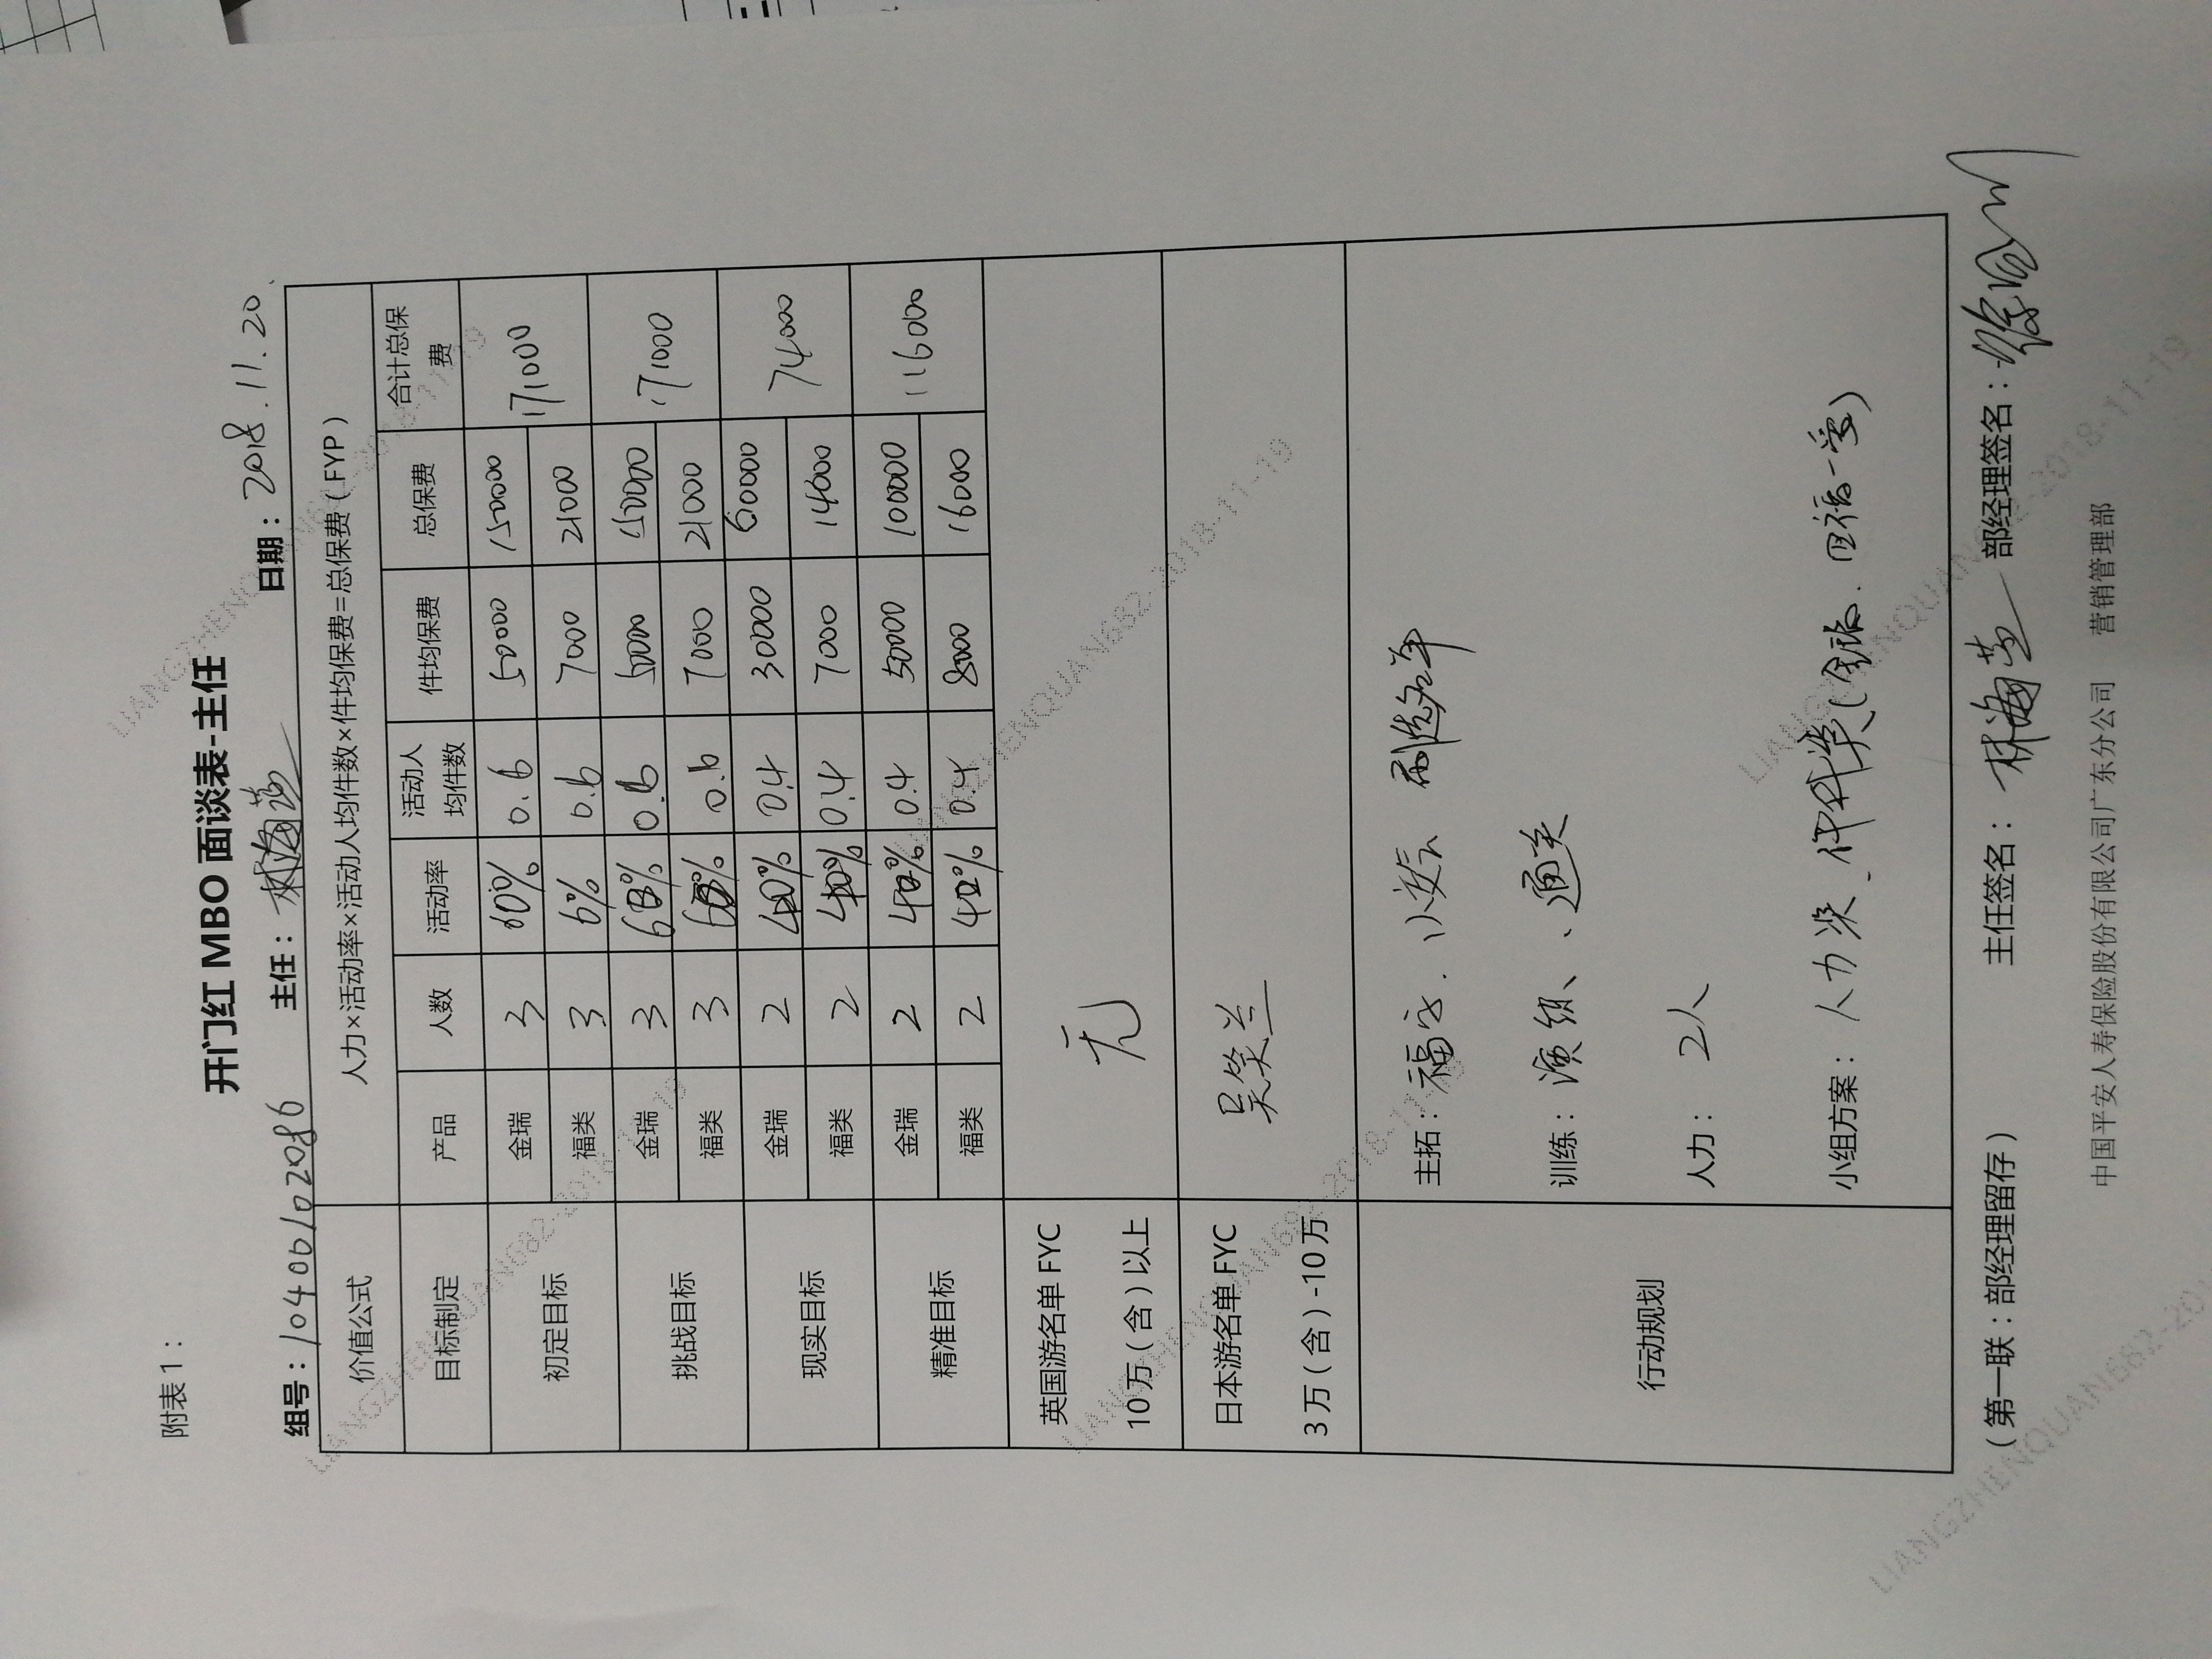 附表1：
开门红 MBO 面谈表-主任
组号： 主任：林海燕 日期：2018.11.20.
价值公式 人力×活动率×活动人均件数×件均保费=总保费（FYP）
目标制定 产品 人数 活动率 活动人均件数 件均保费 总保费 合计总保费
初定目标 金瑞 3 60% 0.6 50000 150000 171000
福类 3 6% 0.6 7000 21000
挑战目标 金瑞 3 60% 0.6 5000 150000 171000
福类 3 60% 0.6 7000 21000
现实目标 金瑞 2 40% 0.4 30000 60000 74000
福类 2 40% 0.4 7000 14000
精准目标 金瑞 2 40% 0.4 50000 100000 116000
福类 2 40% 0.4 8000 16000
英国游名单 FYC 10万（含）以上 无
日本游名单 FYC 3万（含）-10万 吴笑兰
行动规划
主拓：福字.小交会
训练：演组、通关
人力：2人
小组方案：人力奖、件
（第一联：部经理留存） 主任签名：林海燕 部经理签名：
中国平安人寿保险股份有限公司广东分公司 营销管理部